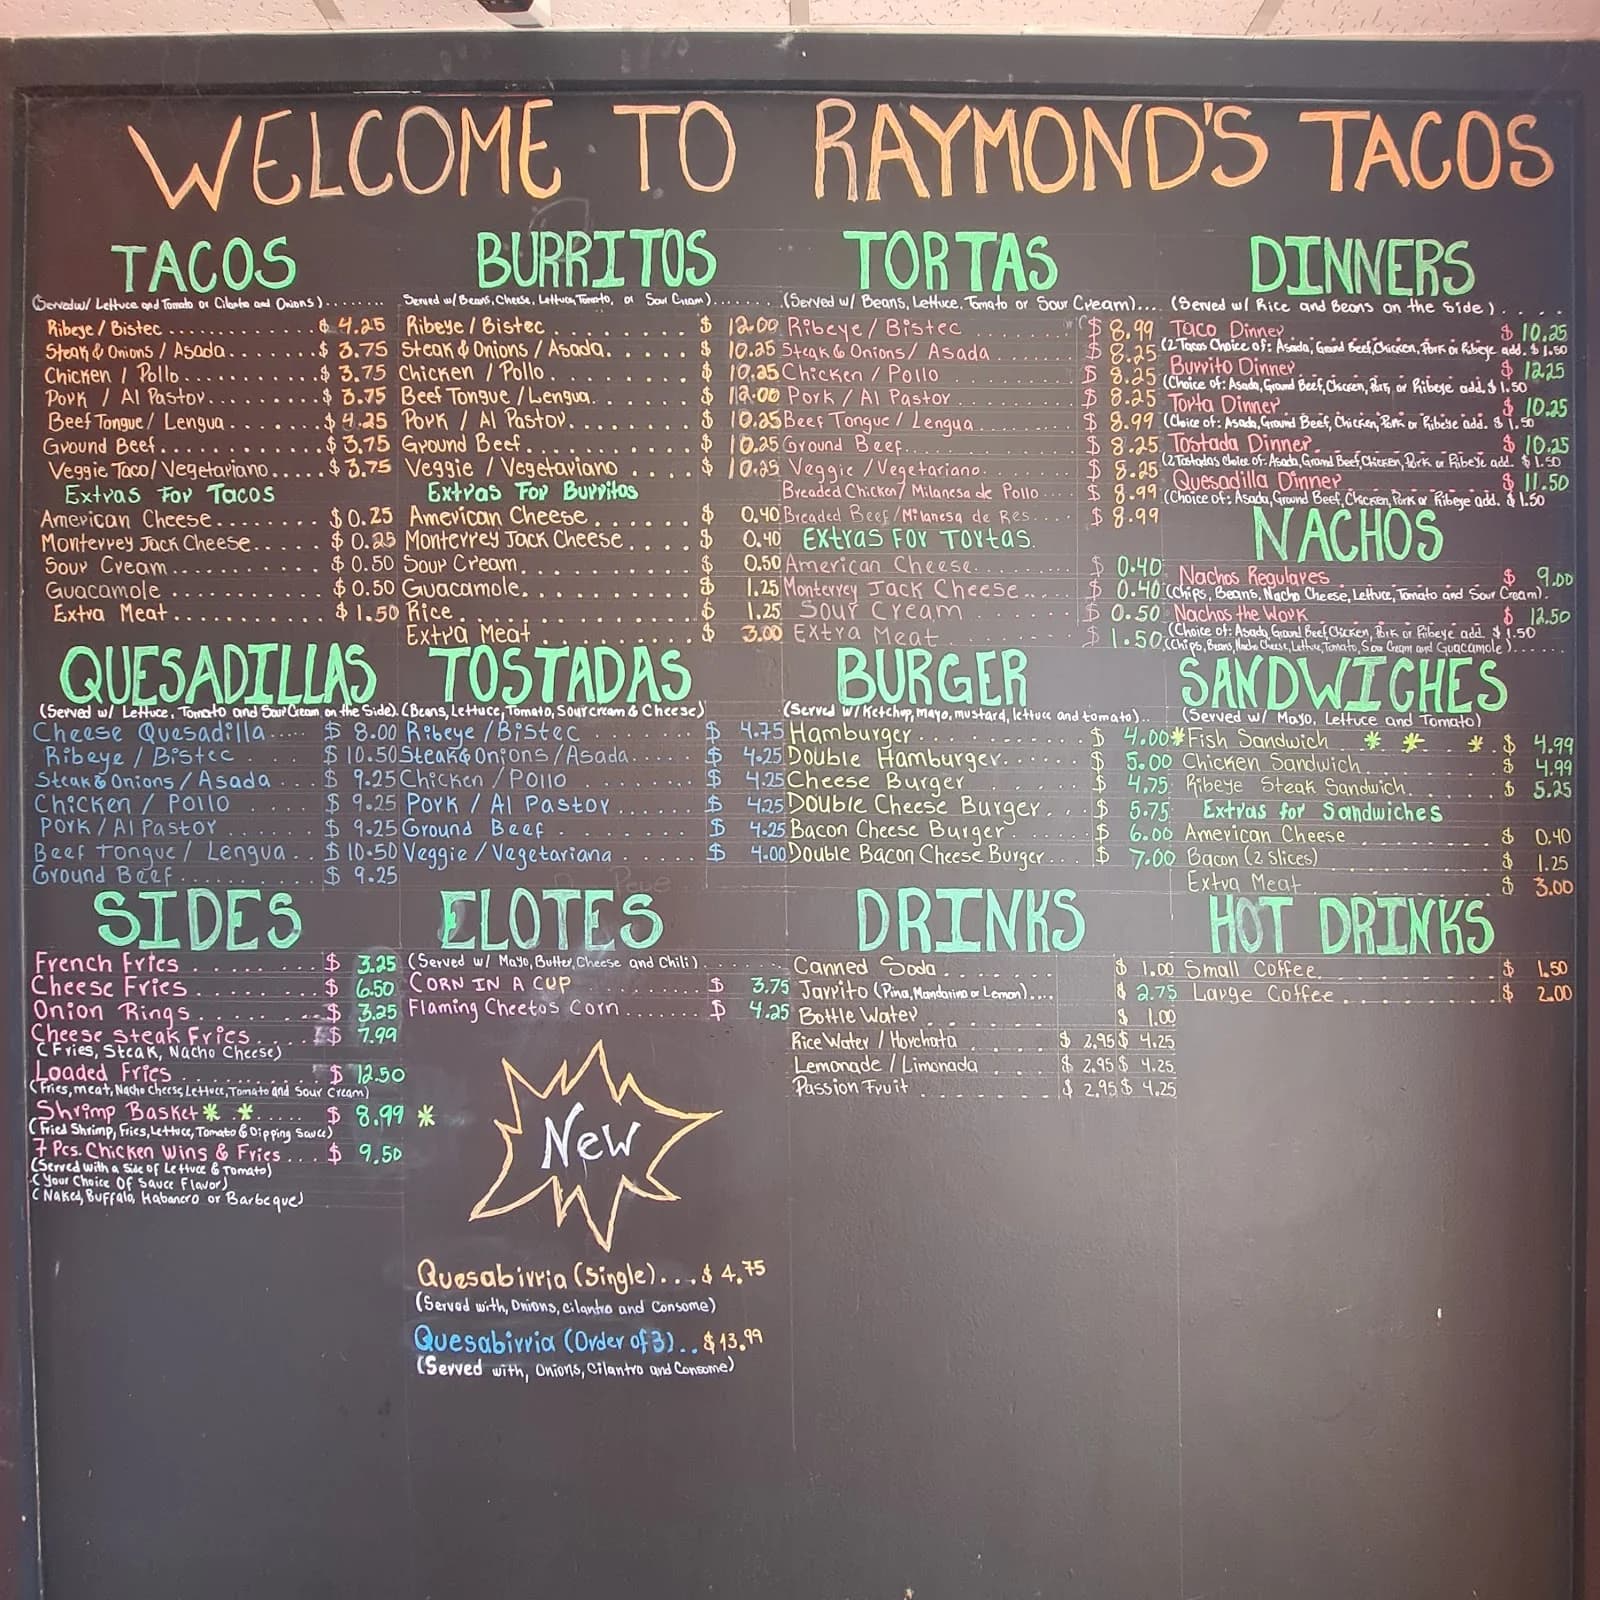 WELCOME TO RAYMOND'S TACOS
TACOS
(Served w/ Lettuce and Tomato or Cilantro and Onions)........
Ribeye / Bistec ............... $ 4.25
Steak & Onions / Asada....... $ 3.75
Chicken / Pollo............ $ 3.75
Pork / Al Pastor........... $ 3.75
Beef Tongue / Lengua....... $ 4.25
Ground Beef............... $ 3.75
Veggie Taco / Vegetariano..... $ 3.75
Extras For Tacos
American Cheese.......... $ 0.25
Monterrey Jack Cheese..... $ 0.25
Sour Cream............... $ 0.50
Guacamole ............... $ 0.50
Extra Meat............... $ 1.50
BURRITOS
Served w/ Beans, Cheese, Lettuce, Tomato, or Sour Cream).......
Ribeye / Bistec ........ $ 12.00
Steak & Onions / Asada...... $ 10.25
Chicken / Pollo........ $ 10.25
Beef Tongue / Lengua...... $ 12.00
Pork / Al Pastor........ $ 10.25
Ground Beef.......... $ 10.25
Veggie / Vegetariano ..... $ 10.25
Extras For Burritos
American Cheese...... $ 0.40
Monterrey Jack Cheese..... $ 0.40
Sour Cream......... $ 0.50
Guacamole......... $ 1.25
Rice............ $ 1.25
Extra Meat......... $ 3.00
TORTAS
(Served w/ Beans, Lettuce, Tomato or Sour Cream)....
Ribeye / Bistec ........ $ 8.99
Steak & Onions / Asada ..... $ 8.25
Chicken / Pollo ........ $ 8.25
Pork / Al Pastor ....... $ 8.25
Beef Tongue / Lengua ..... $ 8.99
Ground Beef........ $ 8.25
Veggie / Vegetariano....... $ 8.25
Breaded Chicken / Milanesa de Pollo .... $ 8.99
Breaded Beef / Milanesa de Res.... $ 8.99
Extras For Tortas.
American Cheese....... $ 0.40
Monterrey Jack Cheese.... $ 0.40
Sour Cream $ 0.50
Extra Meat ....... $ 1.50
DINNERS
(Served w/ Rice and Beans on the Side).....
Taco Dinner $ 10.25
(2 Tacos Choice of: Asada, Grand Beef, Chicken, Pork or Ribeye add. $ 1.50
Burrito Dinner $ 12.25
(Choice of: Asada, Ground Beef, Chicken, Pork, or Ribeye add. $ 1.50
Torta Dinner $ 10.25
(Choice of: Asada, Ground Beef, Chicken, Pork or Ribeye add. $ 1.50
Tostada Dinner $ 10.25
(2 Tostadas Choice of: Asada, Grand Beef, Chicken, Pork or Ribeye add. $ 1.50
Quesadilla Dinner $ 11.50
(Choice of: Asada, Ground Beef, Chicken, Pork or Ribeye add. $ 1.50
NACHOS
Nachos Regulares $ 9.00
(Chips, Beans, Nacho Cheese, Lettuce, Tomato and Sour Cream).
Nachos the Work $ 12.50
(Choice of: Asada, Grand Beef, Chicken, Pork or Ribeye add. $ 1.50
(Chips, Beans, Nacho Cheese, Lettuce, Tomato, Sour Cream and Guacamole)......
QUESADILLAS
(Served w/ Lettuce, Tomato and Sour Cream on the Side).
Cheese Quesadilla..... $ 8.00
Ribeye / Bistec ..... $ 10.50
Steak & Onions / Asada .... $ 9.25
Chicken / Pollo ...... $ 9.25
Pork / Al Pastor ...... $ 9.25
Beef Tongue / Lengua... $ 10.50
Ground Beef.......... $ 9.25
TOSTADAS
(Beans, Lettuce, Tomato, Sour cream & Cheese)
Ribeye / Bistec ...... $ 4.75
Steak & Onions / Asada..... $ 4.25
Chicken / Pollo ...... $ 4.25
Pork / Al Pastor ..... $ 4.25
Ground Beef ........ $ 4.25
Veggie / Vegetariana ..... $ 4.00
BURGER
(Served w/ Ketchup, mayo, mustard, lettuce and tomato)..
Hamburger......... $ 4.00
Double Hamburger...... $ 5.00
Cheese Burger ....... $ 4.75
Double Cheese Burger.... $ 5.75
Bacon Cheese Burger..... $ 6.00
Double Bacon Cheese Burger.... $ 7.00
SANDWICHES
(Served w/ Mayo, Lettuce and Tomato)
*Fish Sandwich * * * . $ 4.99
Chicken Sandwich ...... $ 4.99
Ribeye Steak Sandwich..... $ 5.25
Extras for Sandwiches
American Cheese ....... $ 0.40
Bacon (2 Slices) ....... $ 1.25
Extra Meat ........ $ 3.00
SIDES
French Fries ....... $ 3.25
Cheese Fries ....... $ 6.50
Onion Rings ....... $ 3.25
Cheese Steak Fries.... $ 7.99
(Fries, Steak, Nacho Cheese)
Loaded Fries ........ $ 12.50
(Fries, meat, Nacho Cheese, Lettuce, Tomato and Sour Cream)
Shrimp Basket * * ..... $ 8.99 *
(Fried Shrimp, Fries, Lettuce, Tomato & Dipping Sauce)
7 Pcs. Chicken Wins & Fries... $ 9.50
(Served with a Side of Lettuce & Tomato)
(Your Choice Of Sauce Flavor)
(Naked, Buffalo, Habanero or Barbeque)
ELOTES
(Served w/ Mayo, Butter, Cheese and Chili)
CORN IN A CUP $ 3.75
Flaming Cheetos Corn ...... $ 4.25
New
Quesabirria (Single)... $ 4.75
(Served with, Onions, cilantro and Consome)
Quesabirria (Order of 3).. $ 13.99
(Served with, Onions, Cilantro and Consome)
DRINKS
Canned Soda ....... $ 1.00
Jarrito (Pina, Mandarina or Lemon).... $ 2.75
Bottle Water $ 1.00
Rice Water / Horchata ..... $ 2.95 $ 4.25
Lemonade / Limonada .... $ 2.95 $ 4.25
Passion Fruit ....... $ 2.95 $ 4.25
HOT DRINKS
Small Coffee........ $ 1.50
Large Coffee........ $ 2.00